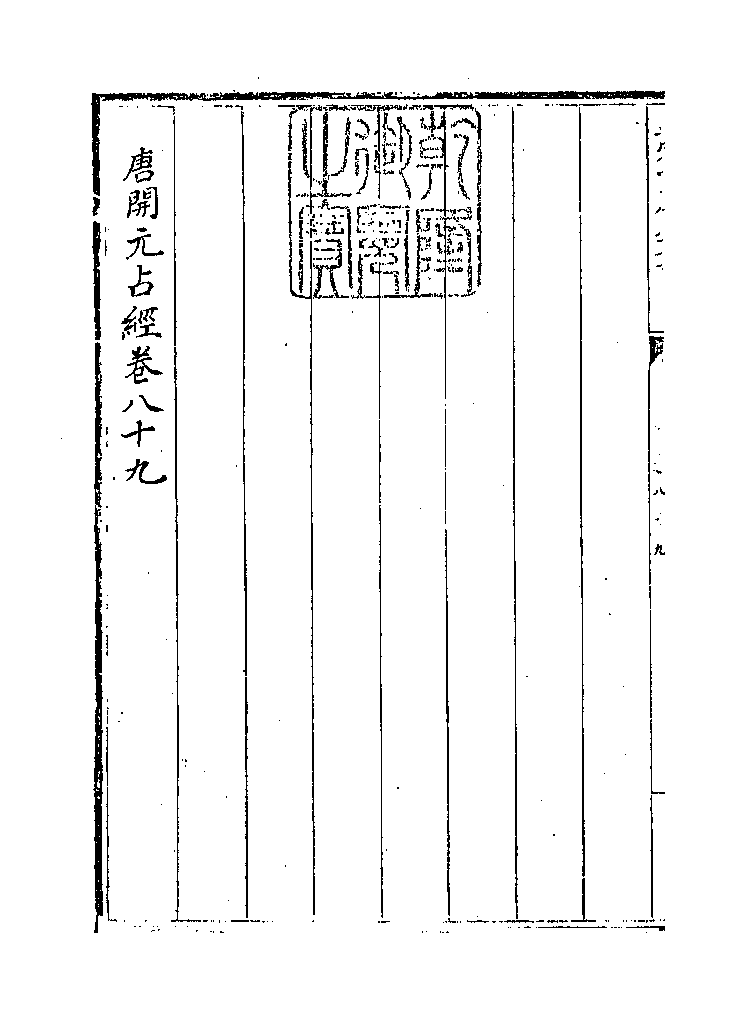 乾隆御覽之寶
唐開元占經卷八十九